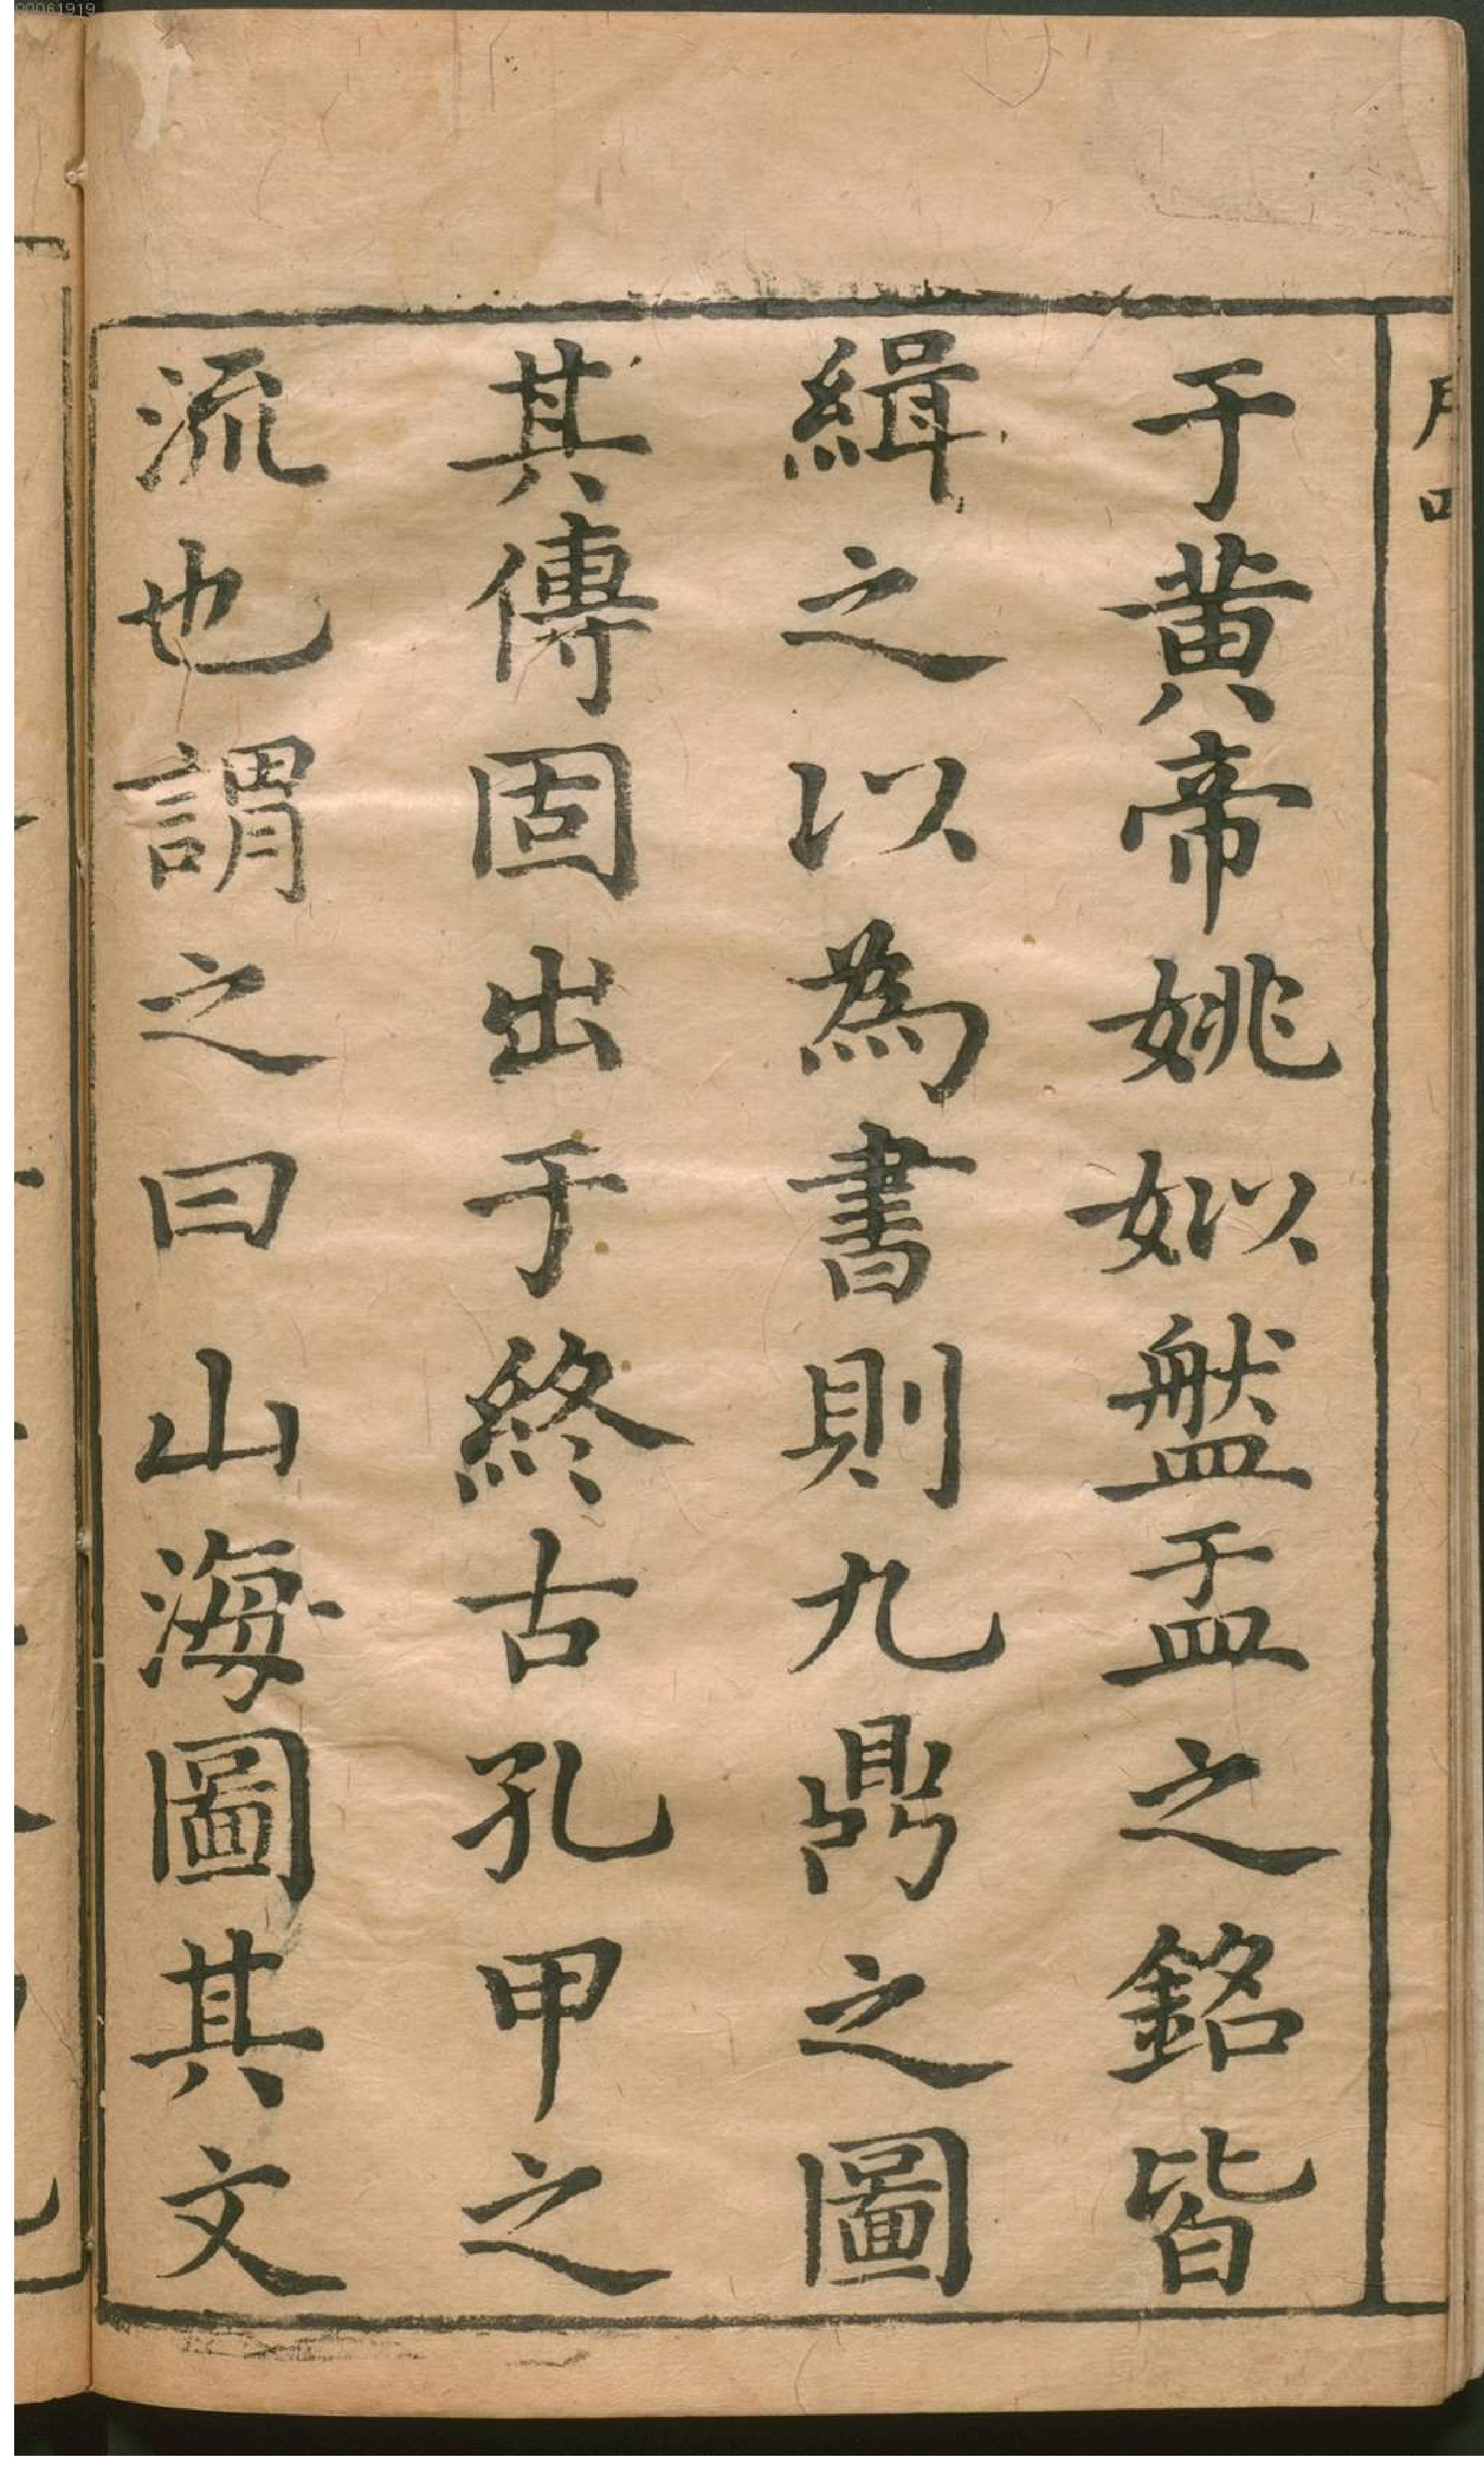 于黄帝姚姒盤盂之銘皆
緝之以為書則九鼎之圖
其傳固出于終古孔甲之
流也謂之曰山海圖其文
00061919